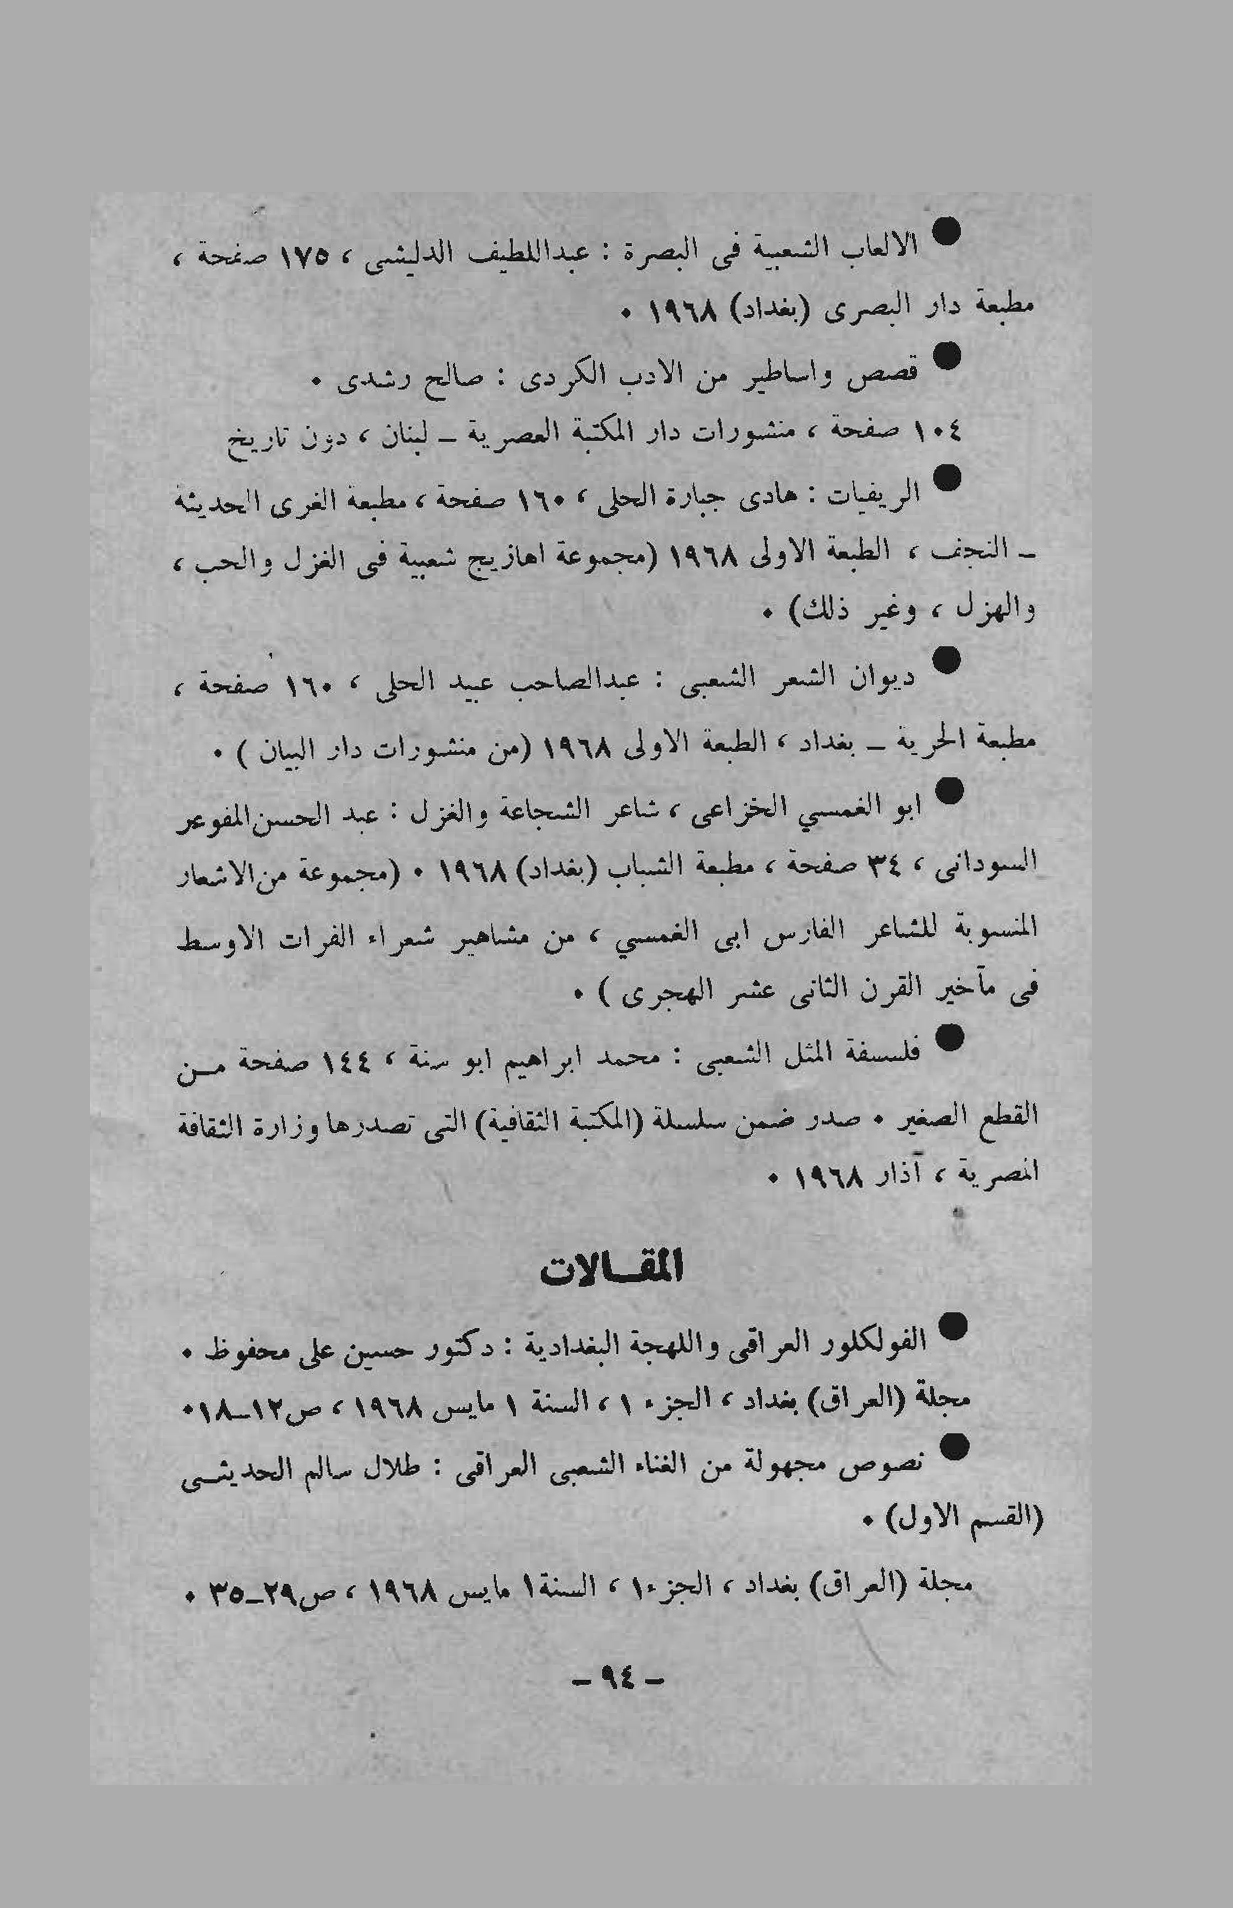 ● الالعاب الشعبية فى البصرة : عبداللطيف الدليشى ، ١٧٥ صفحة ،
مطبعة دار البصرى (بغداد) ١٩٦٨ ٠
● قصص واساطير من الادب الكردى : صالح رشدى ٠
١٠٤ صفحة ، منشورات دار المكتبة العصرية ـ لبنان ، دون تاريخ
● الريفيات : هادى جبارة الحلى ، ١٦٠ صفحة ، مطبعة الغرى الحديثة
ـ النجف ، الطبعة الاولى ١٩٦٨ (مجموعة اهازيج شعبية فى الغزل والحب ،
والهزل ، وغير ذلك) ٠
● ديوان الشعر الشعبى : عبدالصاحب عبيد الحلى ، ١٦٠ صفحة ،
مطبعة الحرية ـ بغداد ، الطبعة الاولى ١٩٦٨ (من منشورات دار البيان ) ٠
● ابو الغمسي الخزاعى ، شاعر الشجاعة والغزل : عبد الحسن المفوعر
السودانى ، ٣٤ صفحة ، مطبعة الشباب (بغداد) ١٩٦٨ ٠ (مجموعة من الاشعار
المنسوبة للشاعر الفارس ابى الغمسي ، من مشاهير شعراء الفرات الاوسط
فى مآخير القرن الثانى عشر الهجرى ) ٠
● فلسفة المثل الشعبى : محمد ابراهيم ابو سنة ، ١٤٤ صفحة مـن
القطع الصغير ٠ صدر ضمن سلسلة (المكتبة الثقافية) التى تصدرها وزارة الثقافة
المصرية ، آذار ١٩٦٨ ٠
المقــالات
● الفولكلور العراقى واللهجة البغدادية : دكتور حسين على محفوظ ٠
مجلة (العراق) بغداد ، الجزء ١ ، السنة ١ مايس ١٩٦٨ ، ص١٢ـ١٨٠
● نصوص مجهولة من الغناء الشعبى العراقى : طلال سالم الحديثـى
(القسم الاول) ٠
مجلة (العراق) بغداد ، الجزء١ ، السنة١ مايس ١٩٦٨ ، ص٢٩ـ٣٥ ٠
ـ ٩٤ ـ